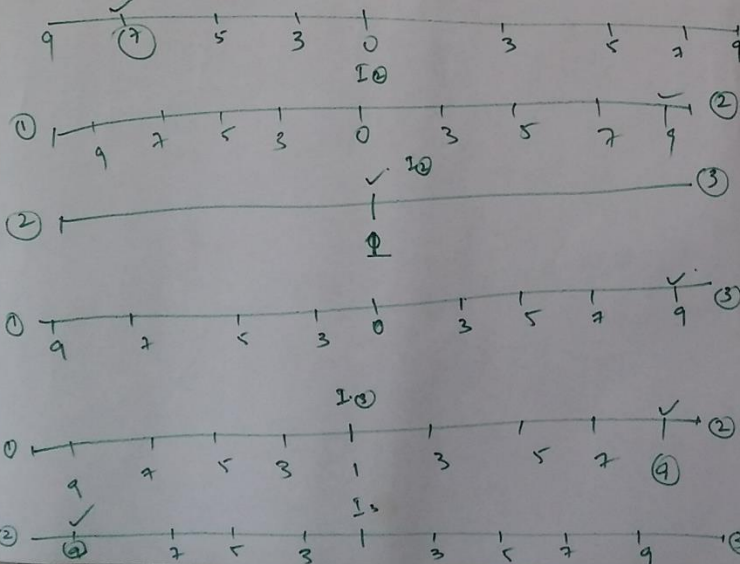 9 7 5 3 0 3 5 7 9
I②
① 9 7 5 3 0 3 5 7 9 ②
I②
② 1 ③
① 9 7 5 3 0 3 5 7 9 ③
I③
① 9 7 5 3 1 3 5 7 9 ②
I3
② 9 7 5 3 1 3 5 7 9